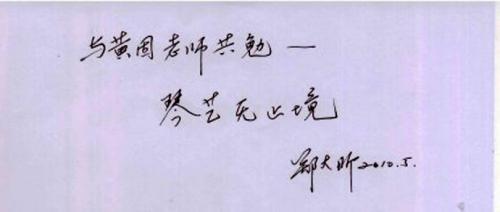 与黄固老师共勉—
琴艺无止境
郑大昕 2010.5.